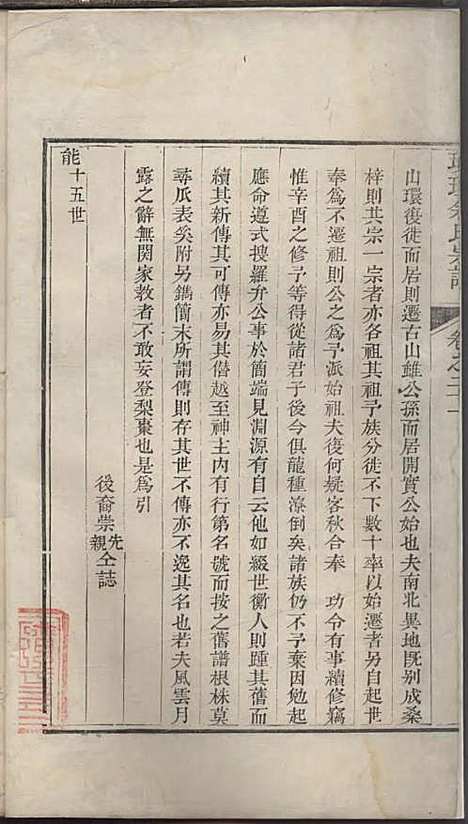 山環復徙而居則遷古山雖公孫而居開實公始也夫南北異地旣别成桑
梓則其宗一宗者亦各祖其祖子族分徙不下數十率以始遷者另自起世
奉爲不遷祖則公之爲予派始祖夫復何疑客秋合奉 功令有事續修竊
惟辛酉之修予等得從諸君子後今俱龍種潦倒矣諸族仍不予棄因勉起
應命遵式搜羅弁公事於簡端見淵源有自云他如綴世衡人則踵其舊而
續其新傳其可傳亦易其僭越至神主內有行第名號而按之舊譜根株莫
尋瓜表奚附另鐫簡末所謂傳則存其世不傳亦不逸其名也若夫風雲月
露之辭無関家教者不敢妄登梨棗也是爲引
後裔崇先親仝誌
十五世
能
卷之二十一